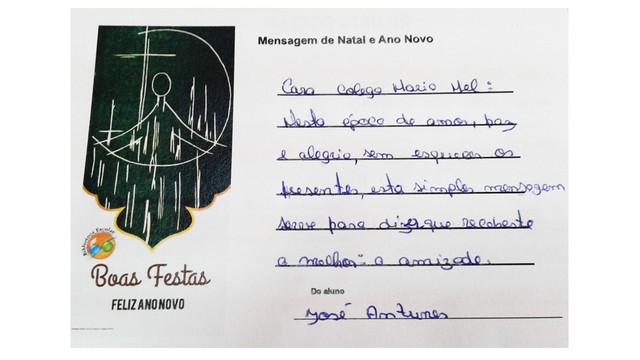 Mensagem de Natal e Ano Novo
Caro colega Mario Mel:
Nesta época de amor, paz
e alegria, sem esquecer os
presentes, esta simples mensagem
serve para dizer que recebeste
a melhor: a amizade.
Do aluno
José Antunes
Biblioteca Escolar
Boas Festas
FELIZ ANO NOVO